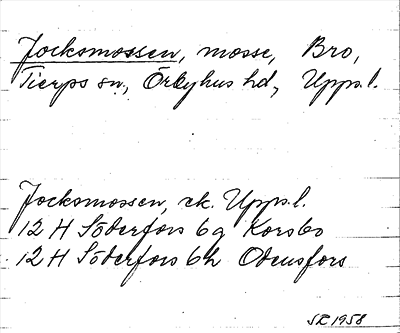 Jocksmossen, mosse, Bro,
Tierps sn., Örbyhus hd, Upps.l.
Jocksmossen, ek. Upps.l.
12 H Söderfors 6g Korsbo
12 H Söderfors 6h Odensfors
SR 1958